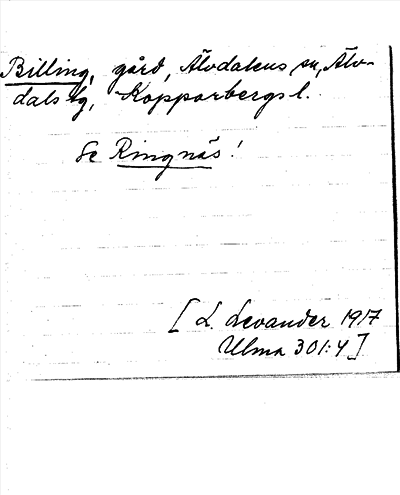 Billing, gård, Älvdalens sn, Älv-
dals tg, Kopparbergs l.
Se Ringnäs!
[L. Levander 1917
Ulma 301:4]